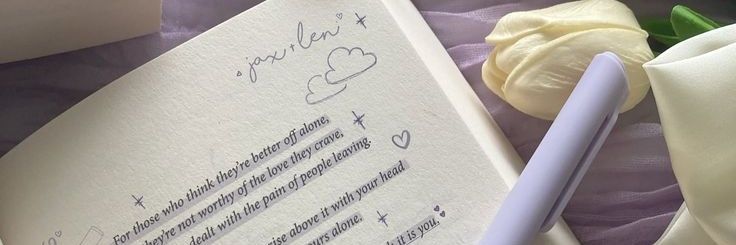 jax + len
For those who think they're better off alone,
they're not worthy of the love they crave,
dealt with the pain of people leaving.
rise above it with your head
yours alone.
it is you.